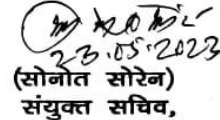 23.05.2023
(सोनोत सोरेन)
संयुक्त सचिव,